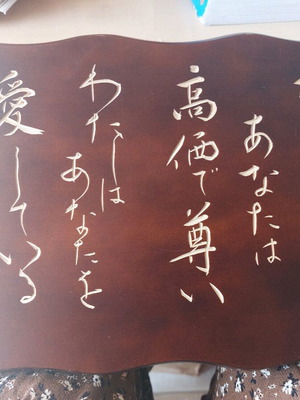 あなたは
高価で尊い
わたしは
あなたを
愛している